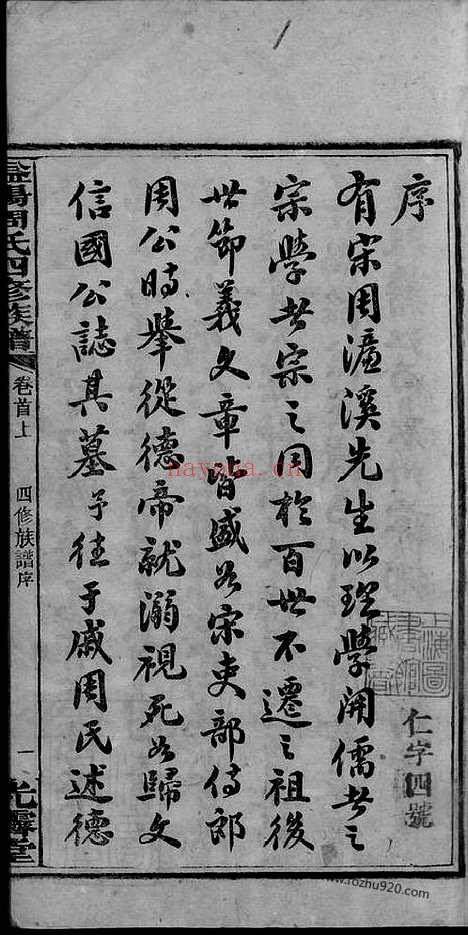 序
有宋周濂溪先生以理學開儒者之
宗學者宗之同於百世不遷之祖後
世節義文章皆盛若宋吏部侍郎
周公時舉從德帝就溺視死如歸文
信國公誌其墓予往于戚周氏述德
益陽周氏四修族譜
卷首上
四修族譜序
一
光霽堂
上海圖書館藏書
仁字四號
nayona.cn
www.rozhu920.com